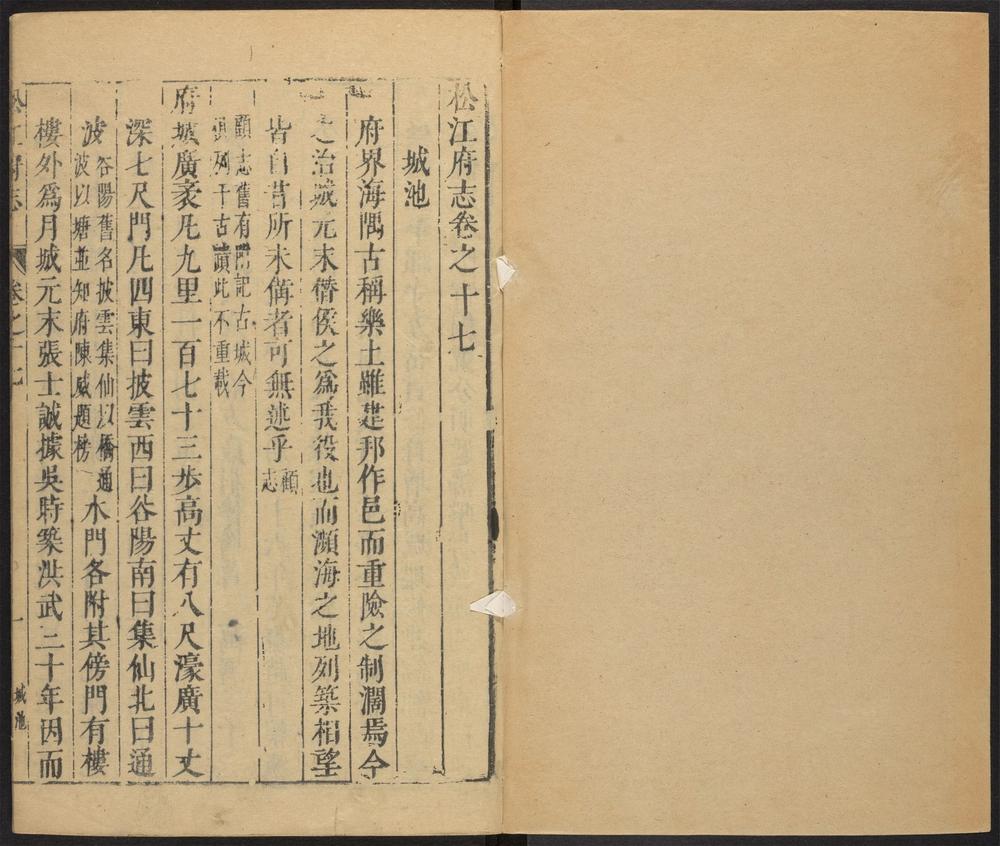 松江府志卷之十七
城池
府界海隅古稱樂土雖建邦作邑而重險之制濶焉今
之治城元末僭侯之爲我役也而瀕海之地列築相望
皆自昔所未備者可無述乎顧
志
顧志舊有門記古城今
列于古蹟此不重載
府城廣袤凡九里一百七十三步高丈有八尺濠廣十丈
深七尺門凡四東曰披雲西曰谷陽南曰集仙北曰通
波谷陽舊名披雲集仙以橋通
波以塘並知府陳威題榜水門各附其傍門有樓
樓外爲月城元末張士誠據吳時築洪武二十年因而
松江府志
卷之十七
一
城池